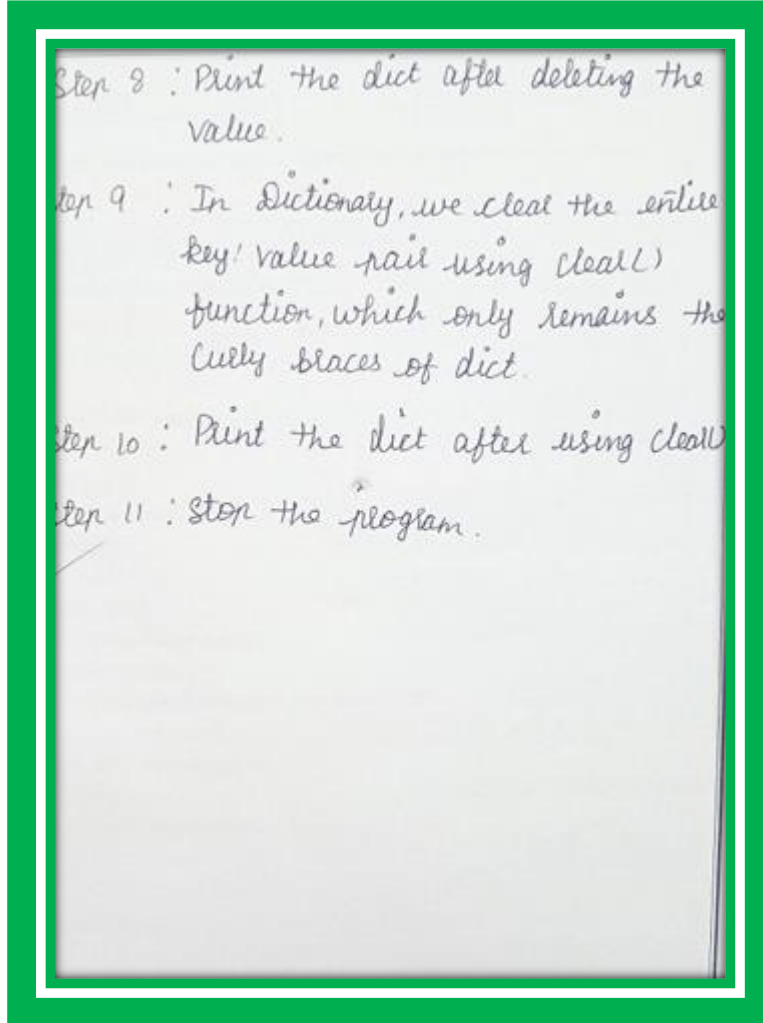 Step 8 : Print the dict after deleting the
value.
tep 9 : In Dictionary, we clear the entire
key: value pair using clear()
function, which only remains the
Curly braces of dict.
tep 10 : Print the dict after using clear()
tep 11 : Stop the program.